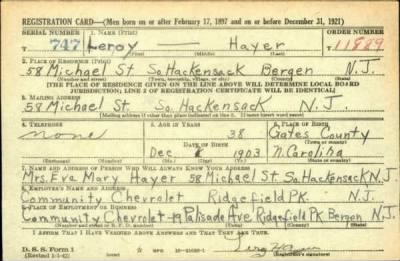 REGISTRATION CARD—(Men born on or after February 17, 1897 and on or before December 31, 1921)
SERIAL NUMBER 1. NAME (Print) ORDER NUMBER
747 Leroy — Hayer 11989
2. PLACE OF RESIDENCE (Print)
58 Michael St. So. Hackensack Bergen N.J.
(Number and street) (Town, township, village, or city) (County) (State)
[THE PLACE OF RESIDENCE GIVEN ON THE LINE ABOVE WILL DETERMINE LOCAL BOARD
JURISDICTION; LINE 2 OF REGISTRATION CERTIFICATE WILL BE IDENTICAL]
3. MAILING ADDRESS
58 Michael St. So. Hackensack N.J.
[Mailing address if other than place indicated on line 2. If same insert word same]
4. TELEPHONE 5. AGE IN YEARS 6. PLACE OF BIRTH
none 38 Gates County
DATE OF BIRTH (Town or county)
Dec 1903 N. Carolina
(Exchange) (Number) (Mo.) (Day) (Yr.) (State or country)
7. NAME AND ADDRESS OF PERSON WHO WILL ALWAYS KNOW YOUR ADDRESS
Mrs. Eva Mary Hayer 58 Michael St. So. Hackensack N.J.
8. EMPLOYER'S NAME AND ADDRESS
Community Chevrolet Ridgefield Pk. N.J.
9. PLACE OF EMPLOYMENT OR BUSINESS
Community Chevrolet-79 Palisade Ave. Ridgefield Pk. Bergen N.J.
(Number and street or R. F. D. number) (Town) (County) (State)
I AFFIRM THAT I HAVE VERIFIED ABOVE ANSWERS AND THAT THEY ARE TRUE.
D. S. S. Form 1
(Revised 1-1-42)
Leroy Hayer